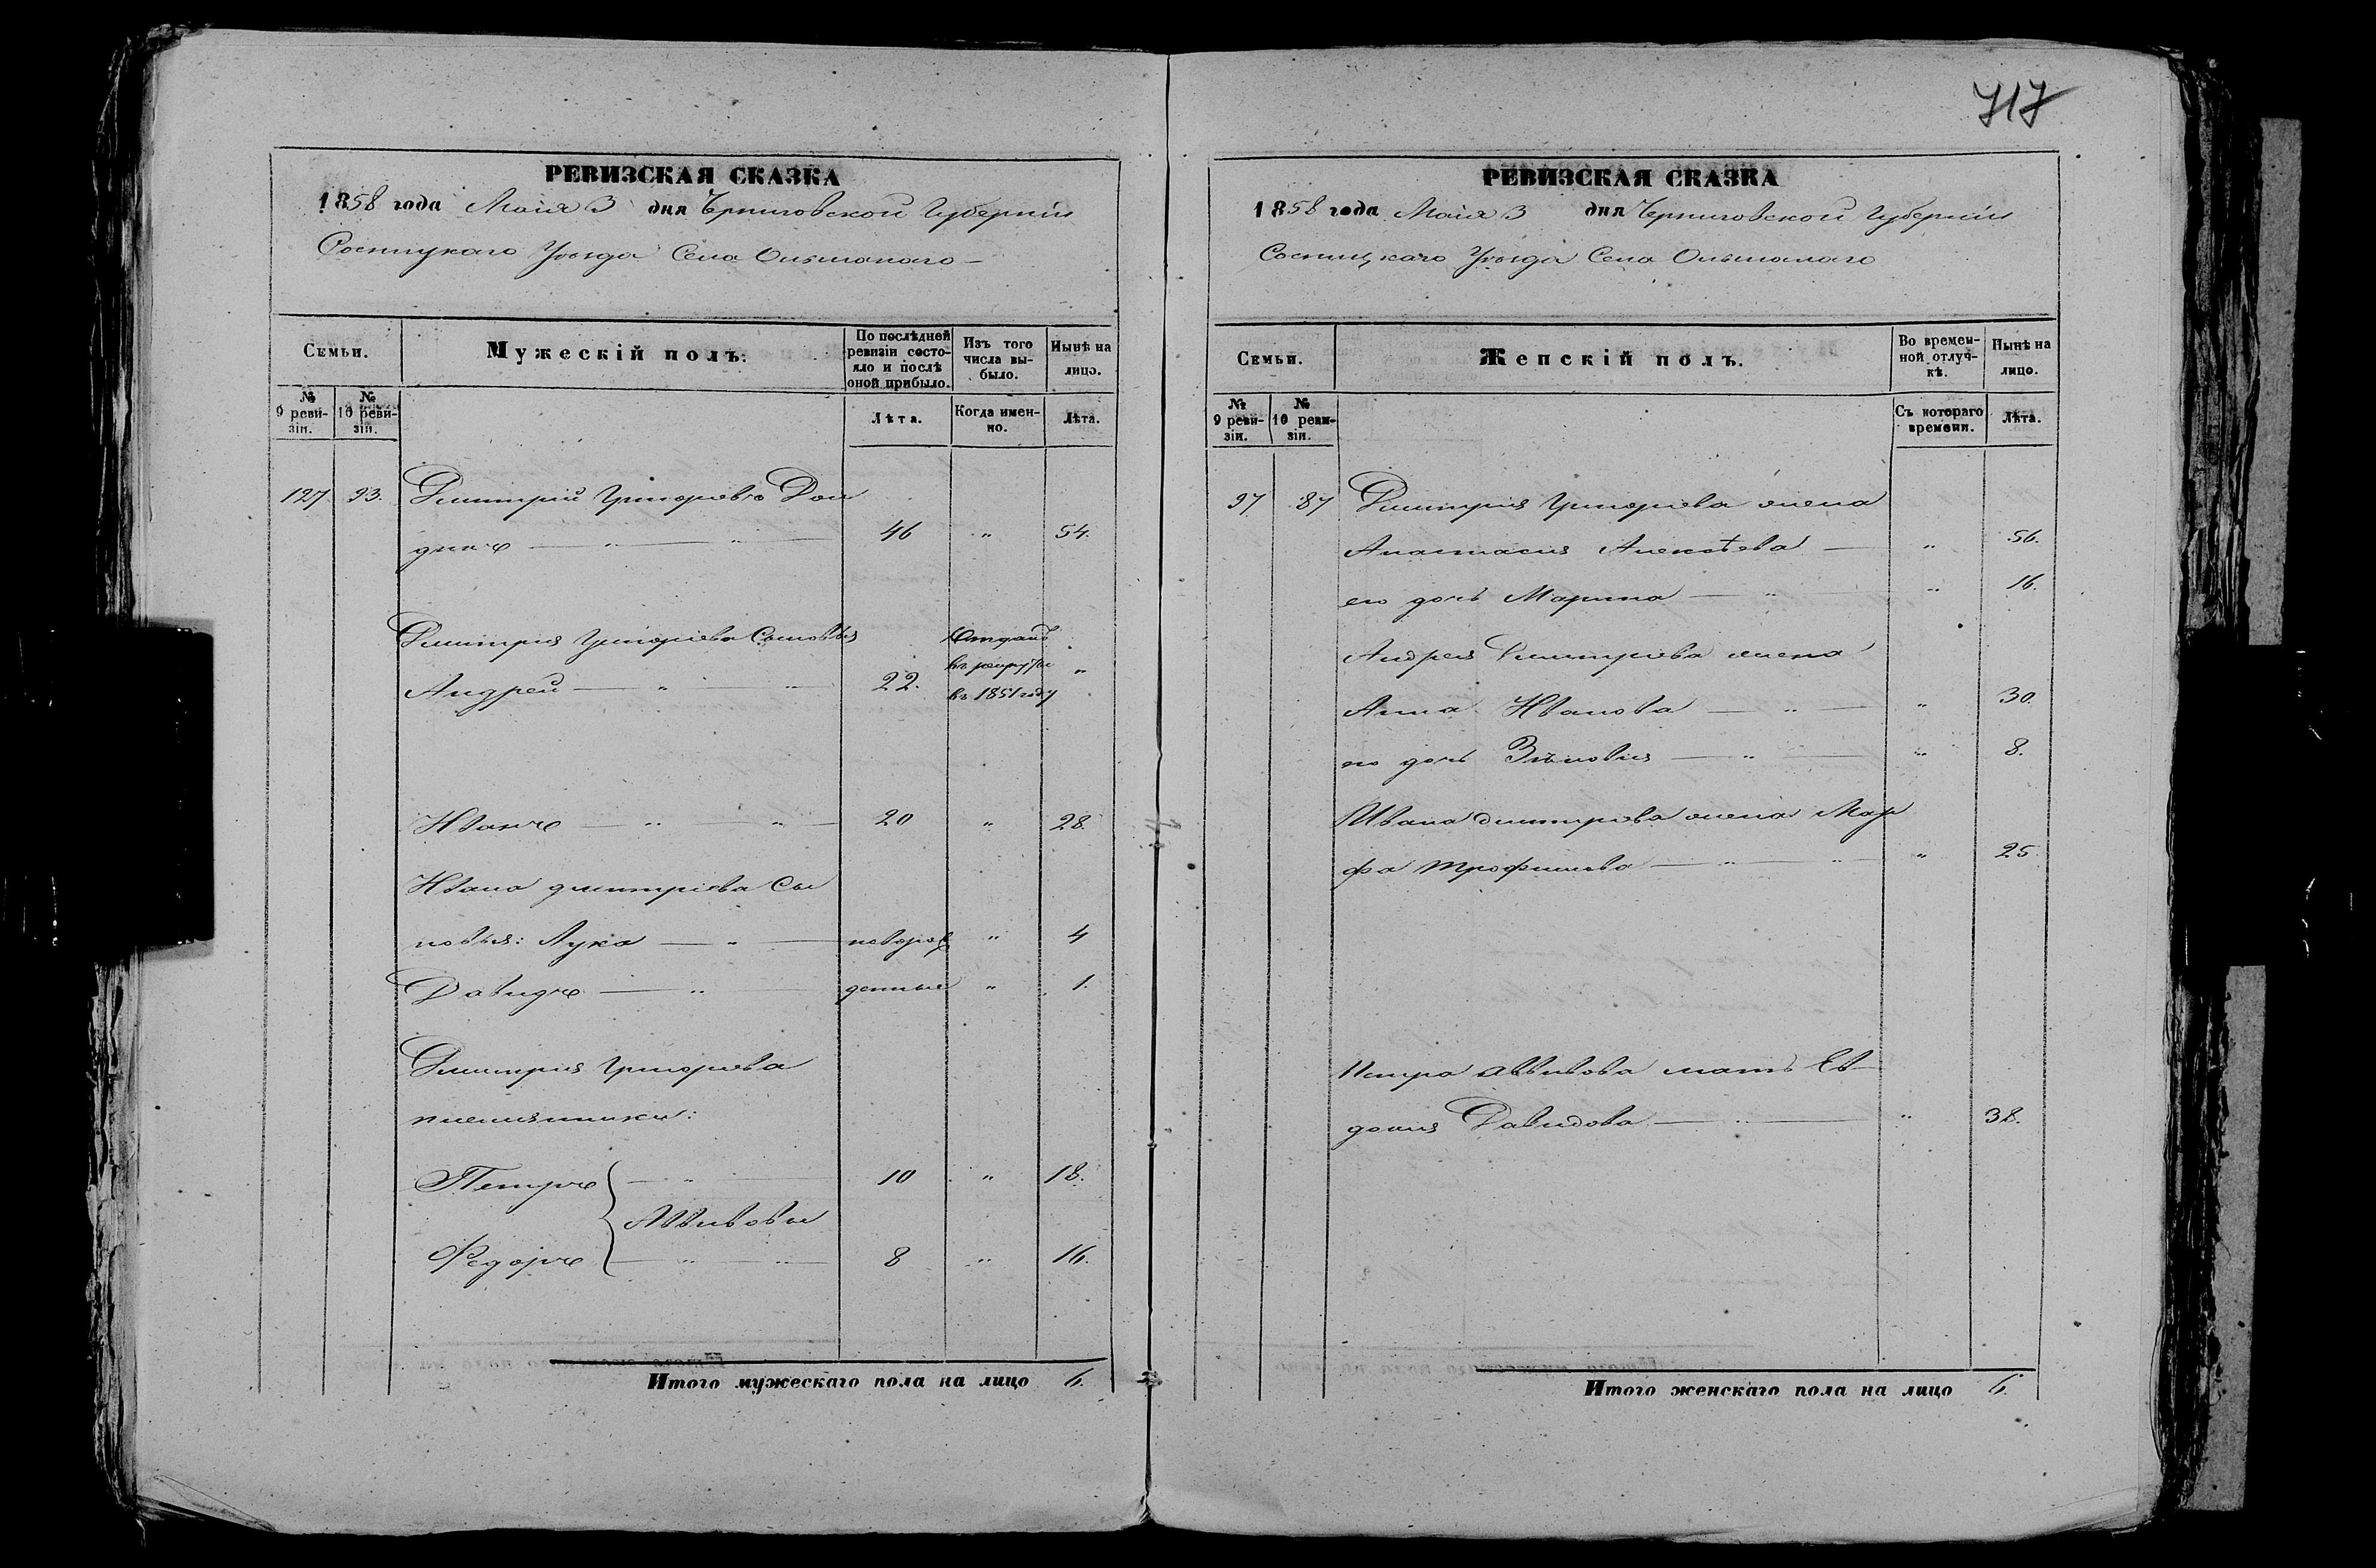 717
РЕВИЗСКАЯ СКАЗКА
1858 года Маія 3 дня Черниговской Губерніи
Сосницкаго Уѣзда Села Ольшанаго
Семьи.
Мужескій полъ.
По послѣдней ревизіи состояло и послѣ оной прибыло.
Изъ того числа выбыло.
Нынѣ на лицо.
№ 9 ревизіи.
№ 10 ревизіи.
Лѣта.
Когда именно.
Лѣта.
127 93. Дмитрій Григорьевъ
46 " 54.
Дмитрія Григоріева Сыновья
Отданъ
въ рекруты
Андрей — " — " 22. "
въ 1851 году
Иванъ — " — " — 20 " 28.
Ивана дмитріева Сы
новья: Лука — " — новорож " 4
Давидъ — " — денные " 1.
Дмитрія Григорьева
племянники:
Петръ — " — 10 " 18.
Федоръ — " — " — 8 " 16.
Итого мужескаго пола на лицо 6.
РЕВИЗСКАЯ СКАЗКА
1858 года Маія 3 дня Черниговской Губерніи
Сосницкаго Уѣзда Села Ольшанаго
Семьи.
Женскій полъ.
Во временной отлучкѣ.
Нынѣ на лицо.
№ 9 ревизіи.
№ 10 ревизіи.
Съ котораго времени.
Лѣта.
97 87 Дмитрія Григорьева жена
Анастасия Алексѣева — " 56.
его дочь Марина — " " 16.
Андрея Дмитріева жена
Анна Иванова — " — " 30.
его дочь Зѣновія — " — " 8.
Ивана дмитріева жена Мар
фа трофимова — " — " — " 25.
Петра мать Ев
докия Давидова — " — " 38.
Итого женскаго пола на лицо 6.